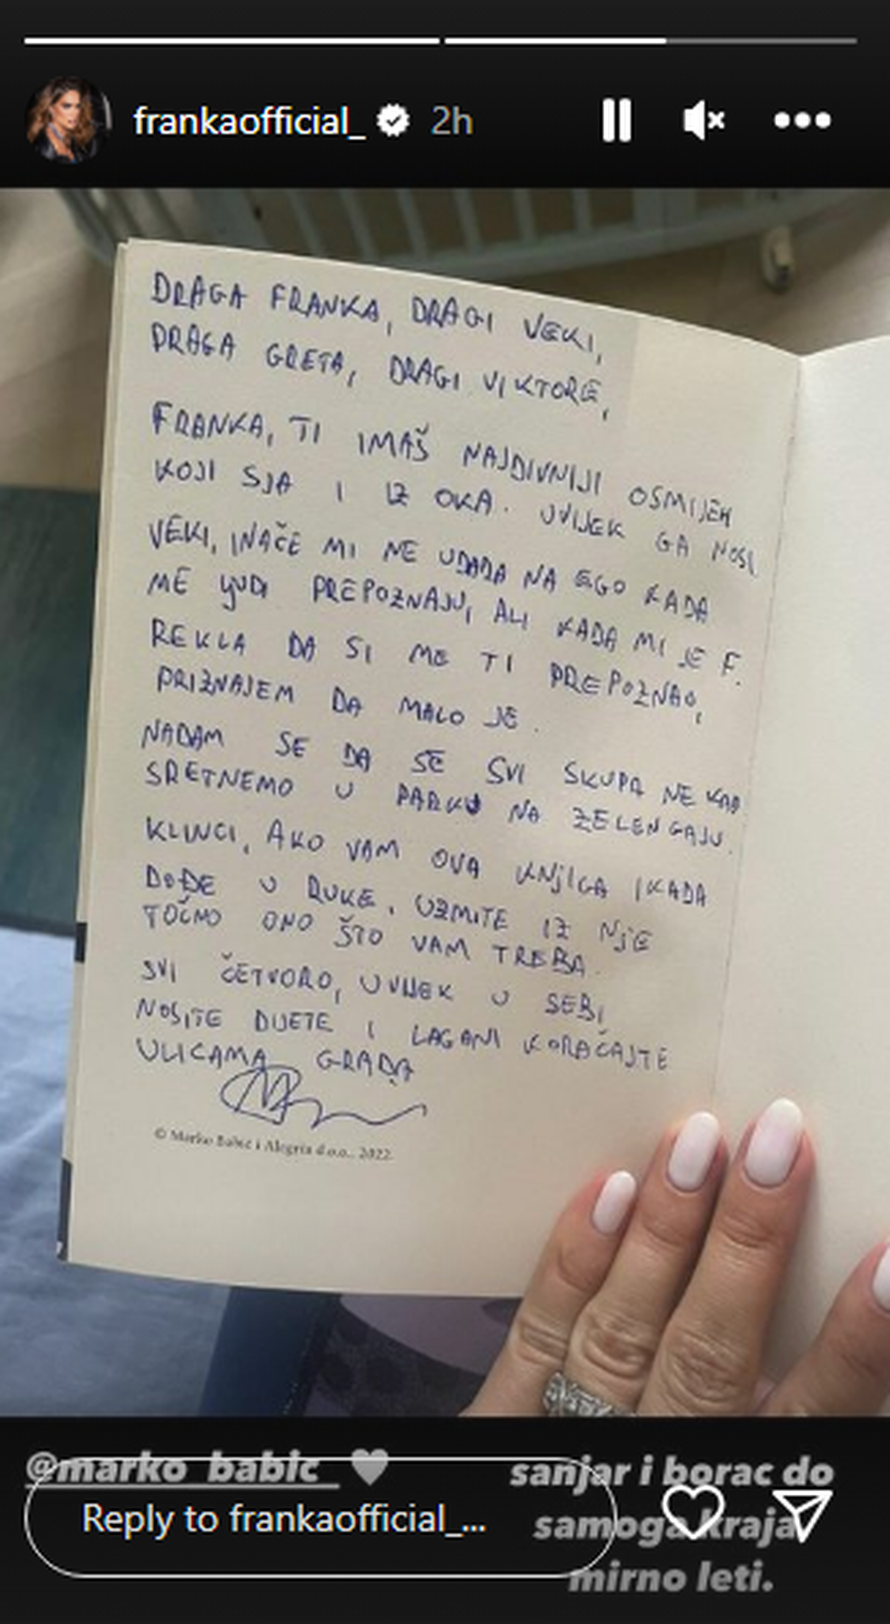 frankaofficial_ 2h
DRAGA FRANKA, DRAGI VEKI,
DRAGA GRETA, DRAGI VIKTORE,
FRANKA, TI IMAŠ NAJDIVNIJI OSMIJEH
KOJI SJA I IZ OKA. UVIJEK GA NOSI
VEKI, INAČE MI NE UDARA NA EGO KADA
ME LJUDI PREPOZNAJU, ALI KADA MI JE F.
REKLA DA SI ME TI PREPOZNAO,
PRIZNAJEM DA MALO JE.
NADAM SE DA SE SVI SKUPA NEKAD
SRETNEMO U PARKU NA ZELENGAJU.
KLINCI, AKO VAM OVA KNJIGA IKADA
DOĐE U RUKE, UZMITE IZ NJE
TOČNO ONO ŠTO VAM TREBA.
SVI ČETVORO, UVIJEK U SEBI
NOSITE DIJETE I LAGANI KORAČAJTE
ULICAMA GRADA
© Marko Babić i Alegria d.o.o., 2022.
@marko_babic
sanjar i borac do
samoga kraja
mirno leti.
Reply to frankaofficial_...